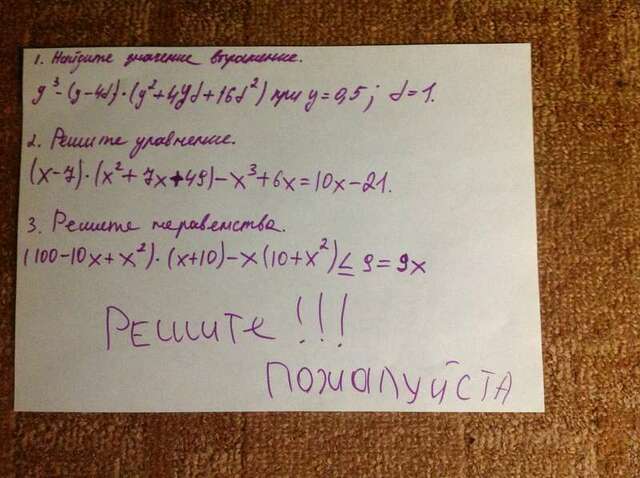 1. Найдите значение выражение.
y³-(y-4d)·(y²+4yd+16d²) при y=0,5; d=1.
2. Решите уравнение.
(x-7)·(x²+7x+49)-x³+6x=10x-21.
3. Решите неравенства.
(100-10x+x²)·(x+10)-x(10+x²)≤9=9x
РЕШИТЕ!!!
ПОЖАЛУЙСТА